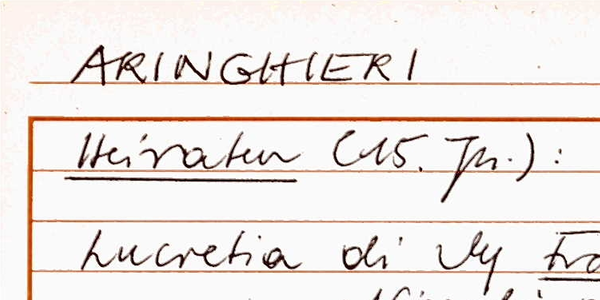 ARINGHIERI
Heiraten (15. Jh.):
Lucretia di